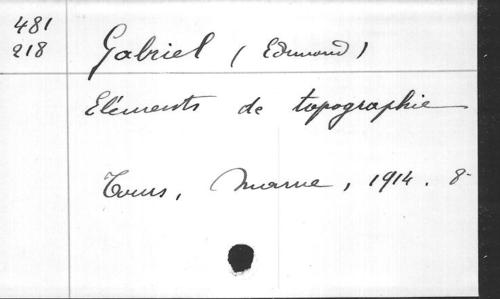 481
218
Gabriel (Edmond)
Eléments de topographie
Tours, Mame, 1914. 8-